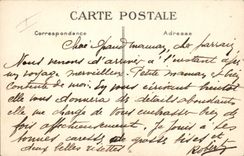 CARTE POSTALE
Correspondance Adresse
Cher Grand maman, cher parrain
Nous venons d'arriver à l'instant après
un voyage merveilleux. Petite maman est très
contente de moi, Elle vous écrivant bientôt
elle vous donnera de détails abondants
elle me charge de vous embrasser bien de
fois affectueusement. Je joins à ses
bonnes caresses grosses bises et
deux belles risettes
Robert